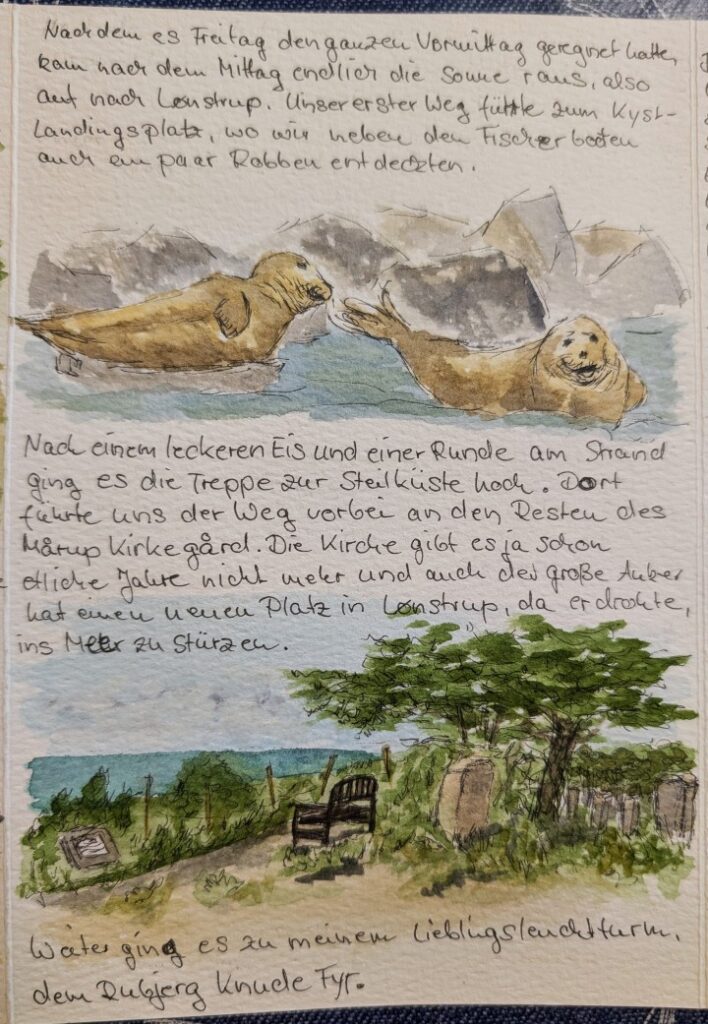 Nachdem es Freitag den ganzen Vormittag geregnet hatte,
kam nach dem Mittag endlich die Sonne raus, also
auf nach Lønstrup. Unser erster Weg führte zum Kyst-
Landingsplatz, wo wir neben den Fischerbooten
auch ein paar Robben entdeckten.
Nach einem leckeren Eis und einer Runde am Strand
ging es die Treppe zur Steilküste hoch. Dort
führte uns der Weg vorbei an den Resten des
Mårup Kirkegård. Die Kirche gibt es ja schon
etliche Jahre nicht mehr und auch der große Anker
hat einen neuen Platz in Lønstrup, da er drohte,
ins Meer zu stürzen.
Weiter ging es zu meinem Lieblingsleuchtturm,
dem Rubjerg Knude Fyr.